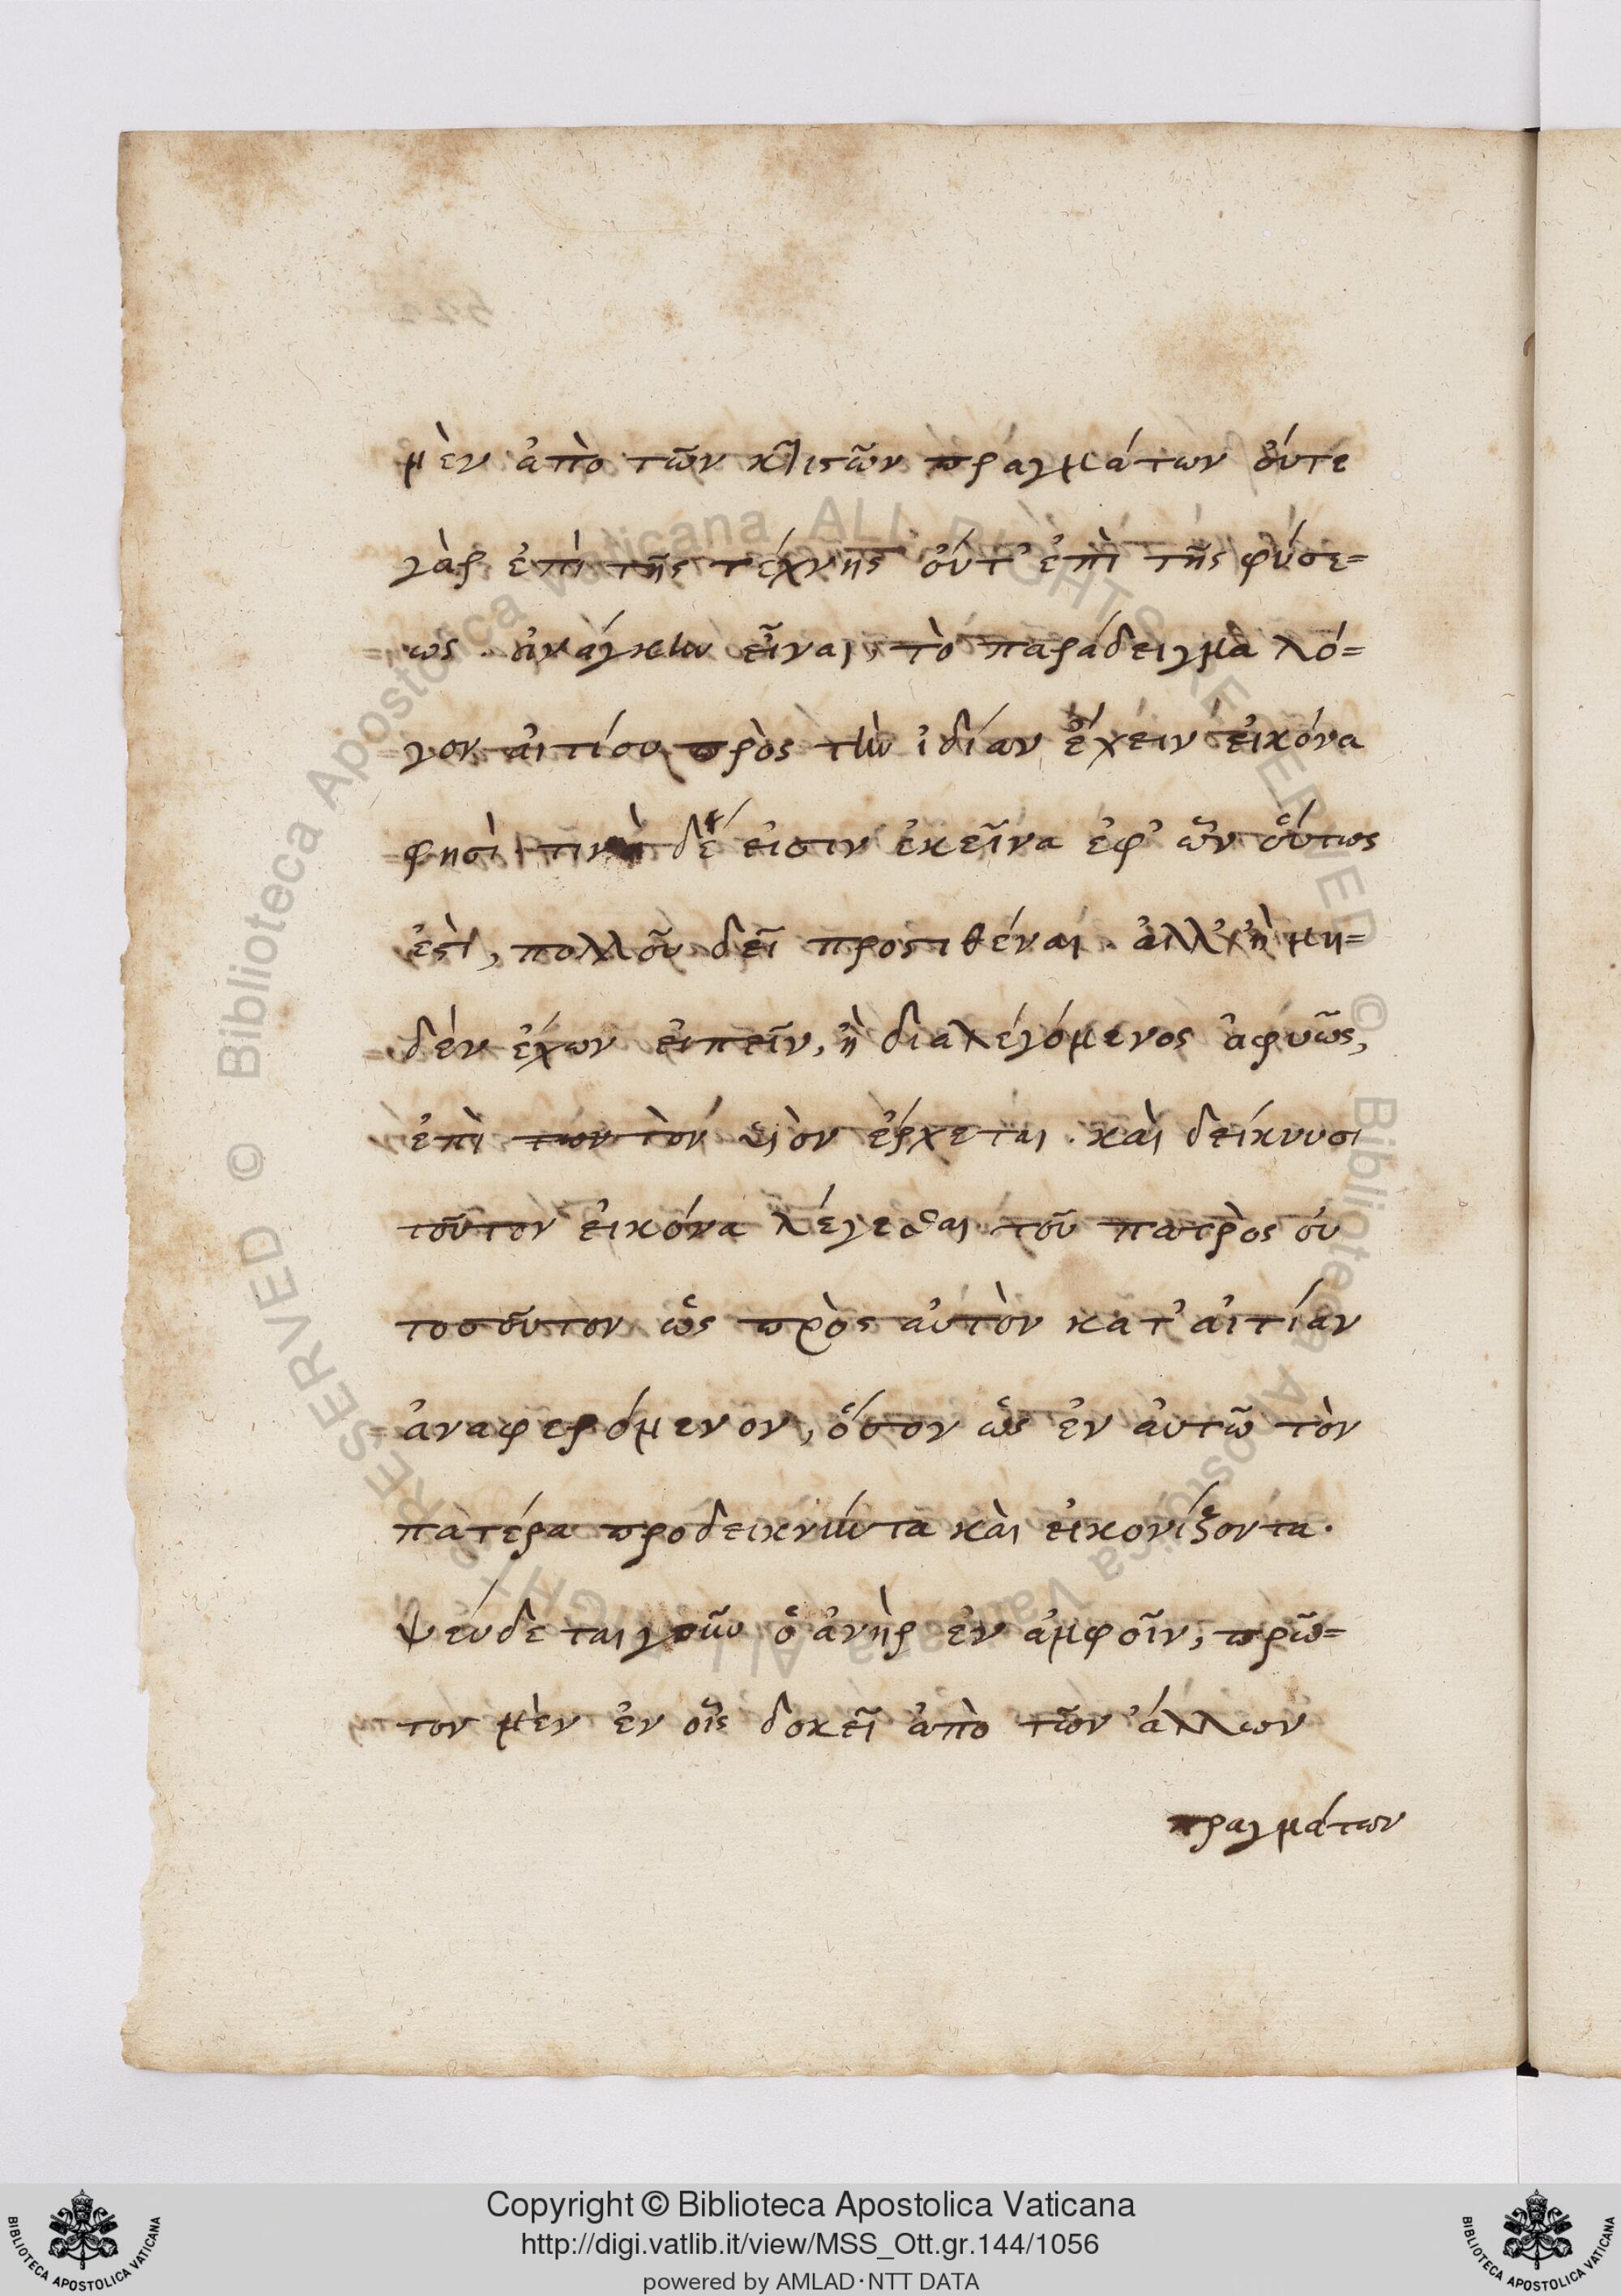 μὲν ἀπὸ τῶν κτιστῶν πραγμάτων οὔτε
γὰρ ἐπὶ τῆς τέχνης οὔτ' ἐπὶ τῆς φύσε=
ως ἀνάγκην εἶναι, τὸ παράδειγμα λό=
γον αἰτίου πρὸς τὴν ἰδίαν ἔχειν εἰκόνα
φησὶ τινὰ δέ εἰσιν ἐκεῖνα ἐφ' ὧν οὕτως
ἐστὶ, πολλοῦ δεῖ προστιθέναι. ἀλλ' ἢ μη=
δὲν ἔχων εἰπεῖν, ἢ διαλεγόμενος ἀφυῶς,
ἐπὶ τὸν υἱὸν ἔρχεται. καὶ δείκνυσι
τοῦτον εἰκόνα λέγεσθαι τοῦ πατρὸς οὐ
τοσοῦτον ὡς πρὸς αὐτὸν κατ' αἰτίαν
ἀναφερόμενον, ὅσον ὡς ἐν αὐτῷ τὸν
πατέρα προδεικνύντα καὶ εἰκονίζοντα.
ψεύδεται γοῦν ὁ ἀνὴρ ἐν ἀμφοῖν, πρῶ=
τον μὲν ἐν οἷς δοκεῖ ἀπὸ τῶν ἄλλων
πραγμάτων
Copyright © Biblioteca Apostolica Vaticana
http://digi.vatlib.it/view/MSS_Ott.gr.144/1056
powered by AMLAD·NTT DATA